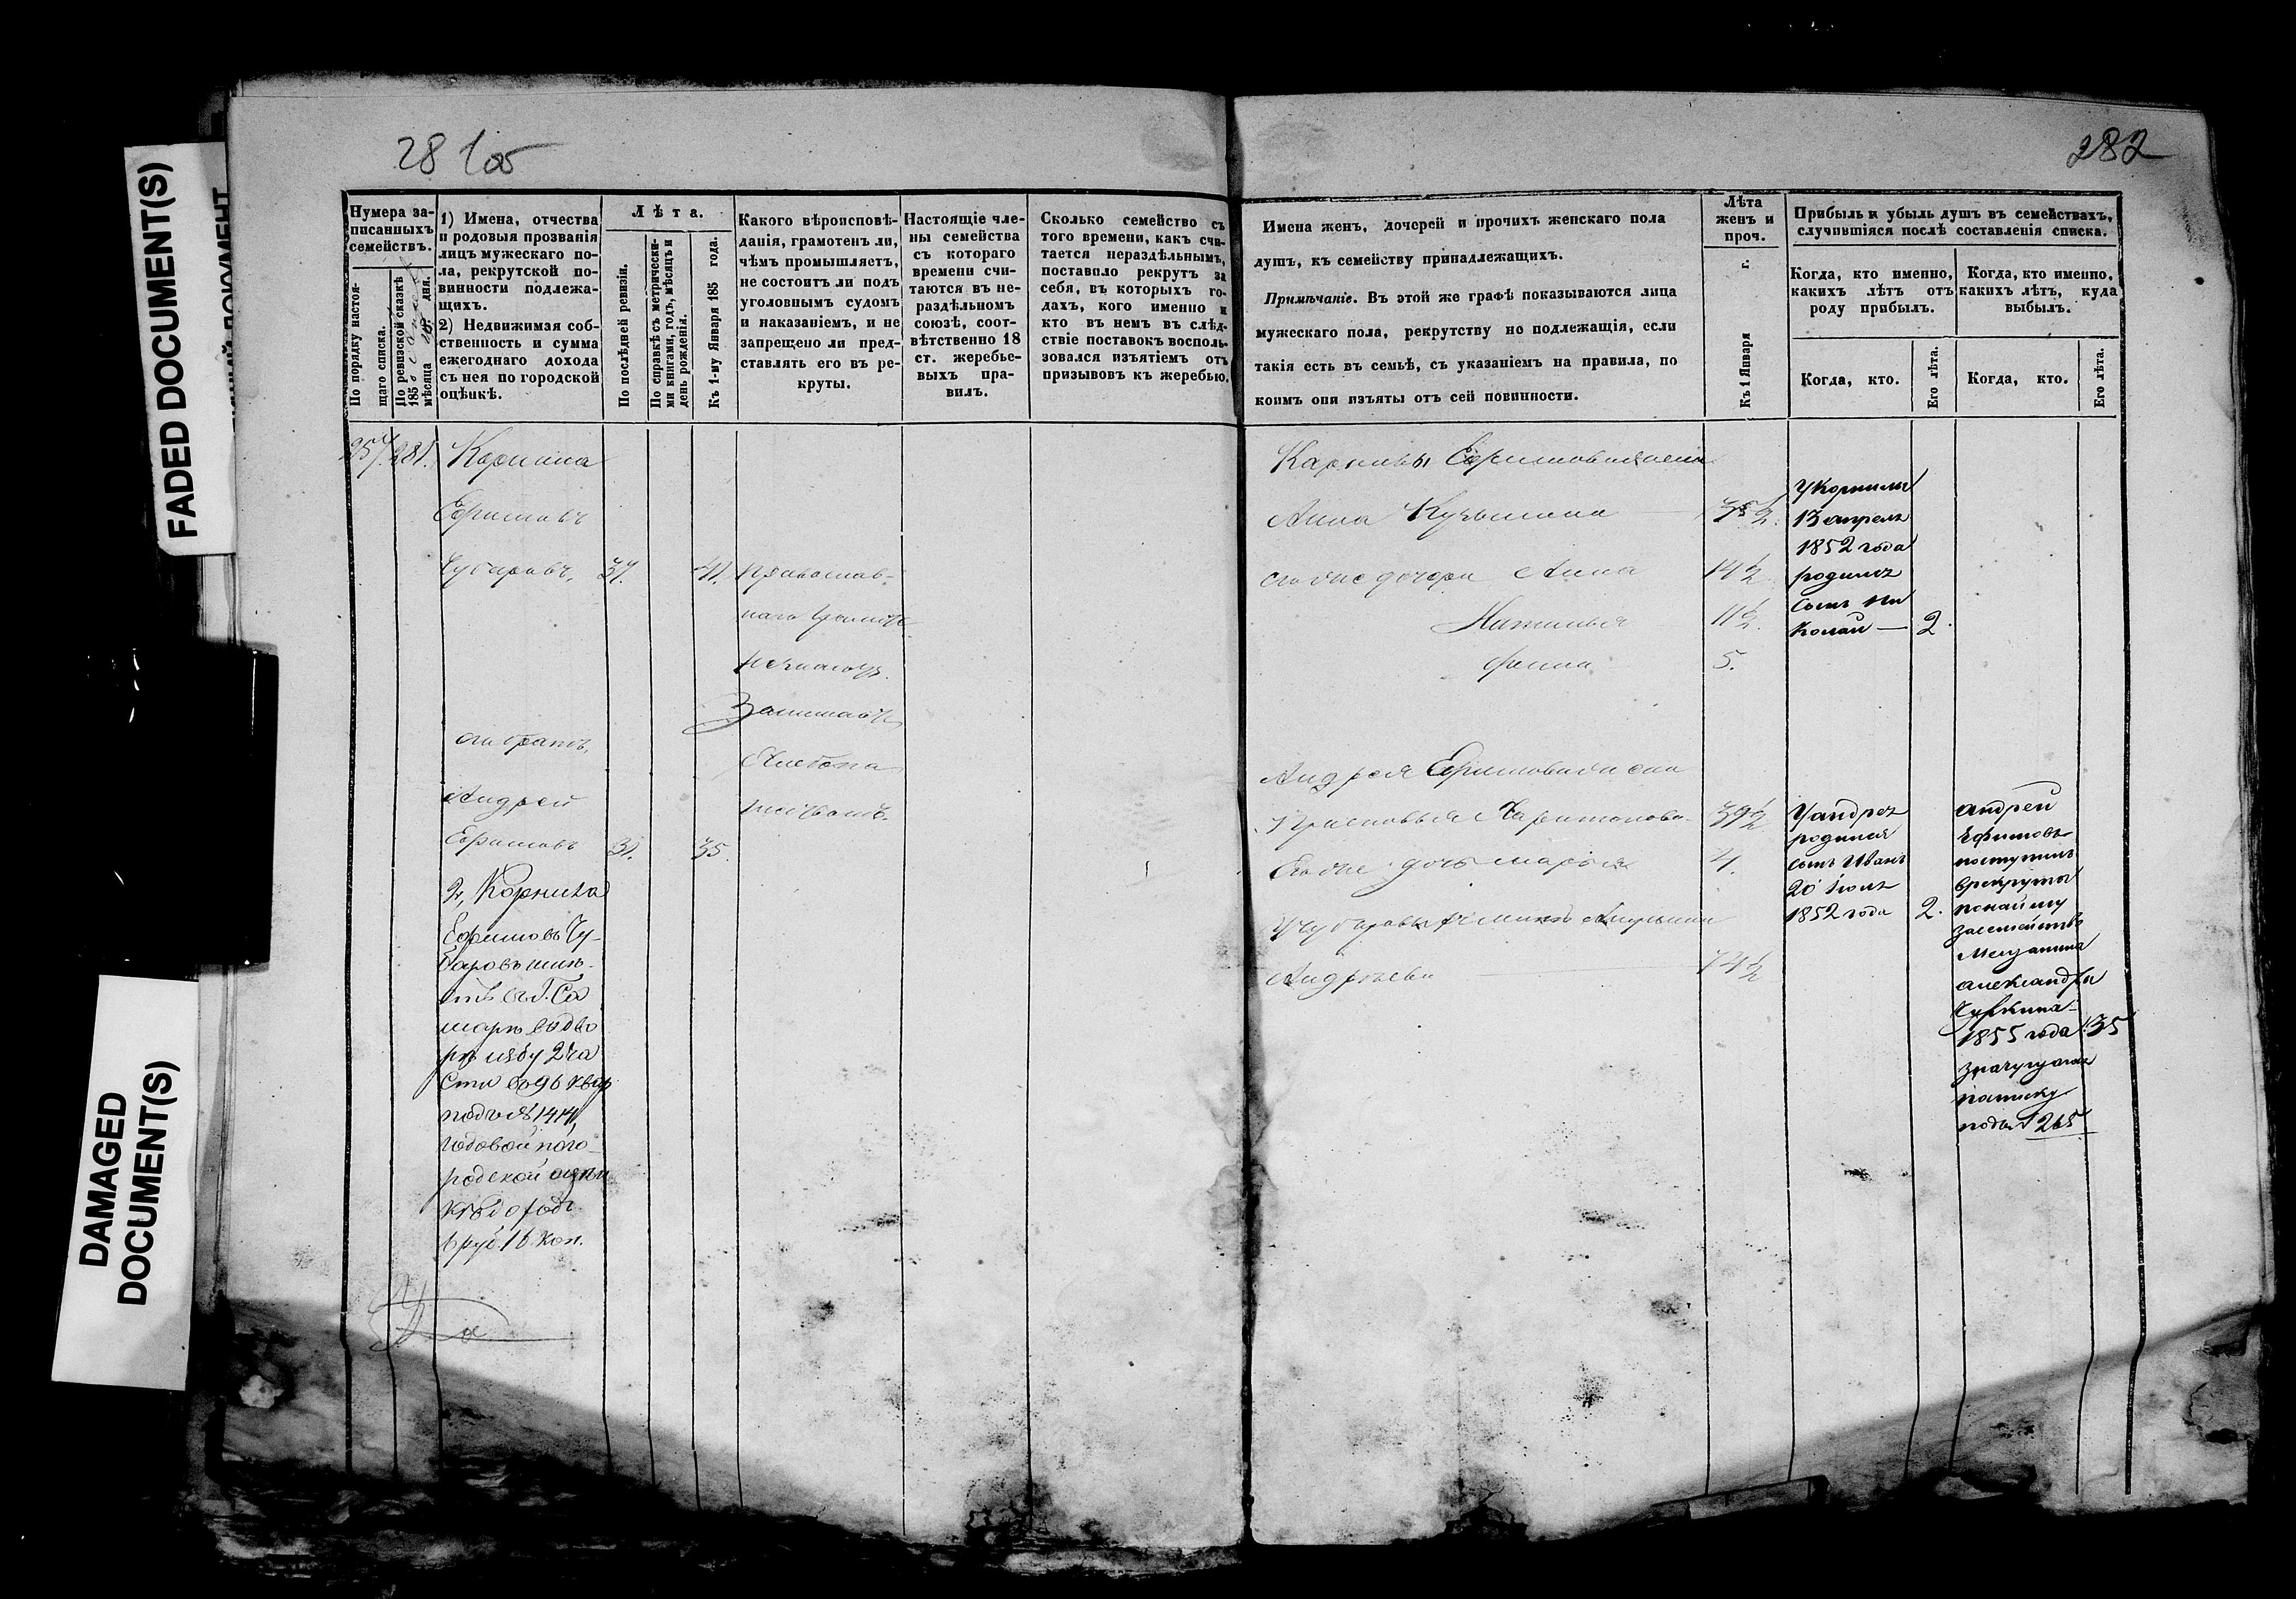 FADED DOCUMENT(S)
DAMAGED
DOCUMENT(S)
281 об
Нумера за-
писанныхъ
семействъ.
По порядку настоя-
щаго списка.
По ревизской сказкѣ
185
мѣсяца дня.
1) Имена, отчества
и родовыя прозванія
лицъ мужескаго по-
ла, рекрутской по-
винности подлежа-
щихъ.
2) Недвижимая соб-
ственность и сумма
ежегоднаго дохода
съ нея по городской
оцѣнкѣ.
Лѣта.
По послѣдней ревизіи.
По справкѣ съ метрически-
ми книгами, годъ, мѣсяцъ и
день рожденія.
Къ 1-му Января 185 года.
Какого вѣроисповѣ-
данія, грамотенъ ли,
чѣмъ промышляетъ,
не состоитъ ли подъ
уголовнымъ судомъ
и наказаніемъ, и не
запрещено ли пред-
ставлять его въ ре-
круты.
Настоящіе чле-
ны семейства
съ котораго
времени счи-
таются въ не-
раздѣльномъ
союзѣ, соот-
вѣтственно 18
ст. жеребье-
выхъ пра-
вилъ.
Сколько семейство съ
того времени, какъ счи-
тается нераздѣльнымъ,
поставило рекрутъ за
себя, въ которыхъ го-
дахъ, кого именно и
кто въ немъ въ слѣд-
ствіе поставокъ восполь-
зовался изъятіемъ отъ
призывовъ къ жеребью.
257. 281. Корнила
Ефимовъ
Чубаровъ, 37. 41. Православ-
наго грамотѣ
незнаетъ
Занимаетъ
Хлебопа
шествомъ.
его братъ,
Андрей
Ефимовъ 31. 35.
2, Корнила
Ефимовъ Чу-
баровъ имѣ-
етъ въ Г. Са
марѣ во дво
рѣ избу 2 ча
сти въ 96 квар
подъ № 1414,
годовой по го-
родской оцѣн
кѣ доходъ
руб. 16 коп.
282
Имена женъ, дочерей и прочихъ женскаго пола
душъ, къ семейству принадлежащихъ.
Примѣчаніе. Въ этой же графѣ показываются лица
мужескаго пола, рекрутству не подлежащія, если
такія есть въ семьѣ, съ указаніемъ на правила, по
коимъ они изъяты отъ сей повинности.
Лѣта
женъ и
проч.
Къ 1 Января г.
Прибыль и убыль душъ въ семействахъ,
случившіяся послѣ составленія списка.
Когда, кто именно,
какихъ лѣтъ отъ
роду прибылъ.
Когда, кто именно,
какихъ лѣтъ, куда
выбылъ.
Когда, кто.
Его лѣта.
Когда, кто.
Его лѣта.
Карнилы Ефимова жена
Анна Кузьмина
его дочери Анна 14½
11½
Фенна 5.
Андрея Ефимова жена
Прасковья Харитонова 39½
Его же дочь Марья 4.
Чубаровыхъ мать Акулина
Андреева 74½
У Корнилы
13 апреля
1852 года
родился
сынъ Ни
колай — 2.
У Андрея
родился
сынъ Иванъ
20 Іюля
1852 года 2.
Андрей
Ефимовъ
поступилъ
в рекруты
по найму
за семейство
Мещанина
Александра
Чуркина
1855 года 35
подъ № 265